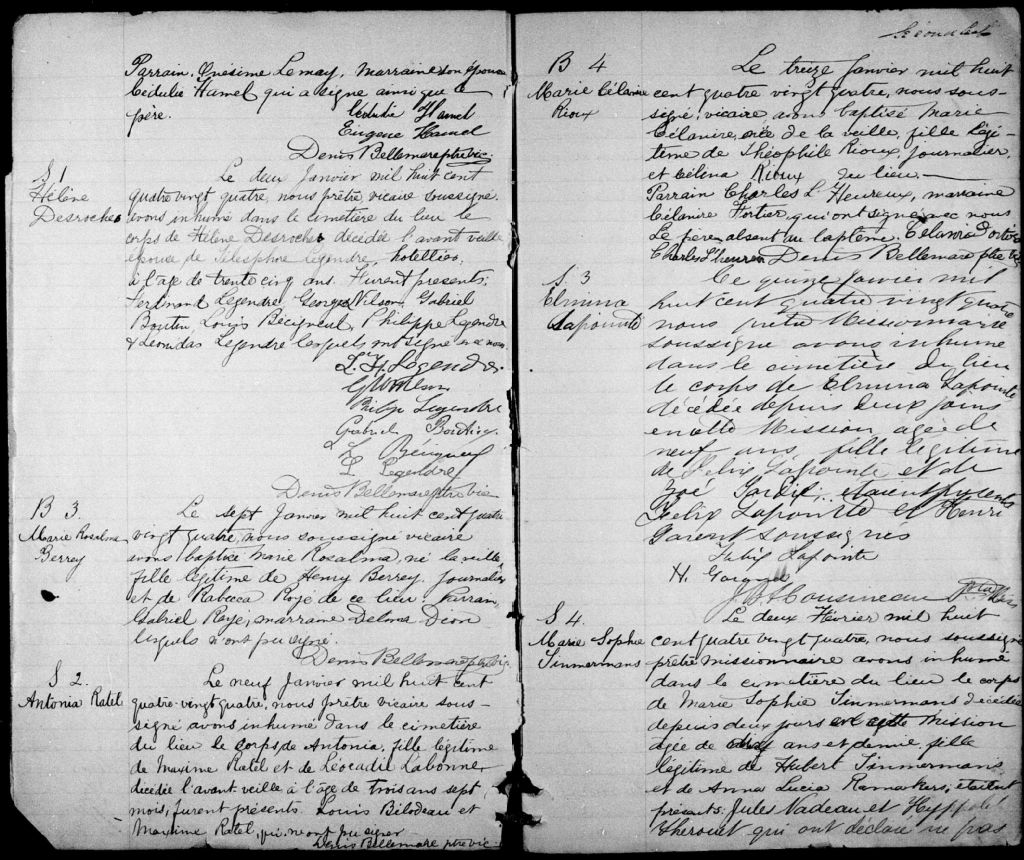 Parrain, Onésime Lemay, Marraine son épouse
Cédulie Hamel qui a signé ainsi que le
père.
Cédulie Hamel
Eugene Hamel
Denis Bellemare ptre vic.
S 1
Hélène
Desroches
Le deux Janvier mil huit cent
quatre vingt quatre, nous prêtre vicaire soussigné
avons inhumé dans le cimetière du lieu le
corps de Hélène Desroches décédée l'avant veille
épouse de Télesphore Legendre, hotellier,
à l'âge de trente cinq ans. Furent présents:
Ferdinand Legendre, George Wilson, Gabriel
Boutin, Louis Bécigneul, Philippe Legendre
& Leonidas Legendre lesquels ont signé avec nous
L. H. Legendre
G Wilson
Philipe Legendre
Gabriel Boutin
L Bécigneul
L Legendre
Denis Bellemare ptre vic
B 3.
Marie Rosalma
Berrey
Le sept Janvier mil huit cent quatre
vingt quatre, nous soussigné vicaire
avons baptisé Marie Rosalma, né la veille,
fille légitime de Henry Berrey, journalier
et de Rabecca Roye de ce lieu Parrain
Gabriel Roye, marraine Delima Dion
lesquels n'ont pu signé.
Denis Bellemare ptre vic.
S 2.
Antonia Ratel
Le neuf Janvier mil huit cent
quatre-vingt quatre, nous prêtre vicaire sous-
signé avons inhumé dans le cimetière
du lieu le corps de Antonia, fille légitime
de Maxime Ratel et de Léocadie Labonne,
décédée l'avant veille à l'âge de trois ans sept
mois, furent présents Louis Bilodeau et
Maxime Ratel, qui n'ont pu signer
Denis Bellemare ptre vic.
B 4
Marie Célanire
Rioux
Le treize Janvier mil huit
cent quatre vingt quatre, nous sous-
signé, vicaire, avons baptisé Marie
Célanire, née de la veille, fille légi-
time de Théophile Rioux, journalier,
et Céléna Rioux du lieu.
Parrain Charles L'Heureux, marraine
Célanire Fortier, qui ont signé avec nous
Le père absent au baptême. Célanire Fortier
Charles L'heureux Denis Bellemare ptre vic
S. 3
Elmina
Lapointe
Ce quinze janvier mil
huit cent quatre vingt quatre
nous prêtre Missionnaire
soussigné avons inhumé
dans le cimetière du lieu
le corps de Elmina Lapointe
décédée depuis deux jours
en cette Mission agée de
neuf ans, fille légitime
de Felix Lapointe et de
Zoé étaient présents
Felix Lapointe et Henri
Garent soussignés
Felix Lapointe
J. A. Cousineau
S 4.
Marie Sophie
Timmermans
Le deux Février mil huit
cent quatre vingt quatre, nous soussigné
prêtre missionnaire avons inhumé
dans le cimetière du lieu le corps
de Marie Sophie Timmermans décédée
depuis deux jours en cette Mission
agée de ans et demie, fille
légitime de Hubert Timmermans
et de Anna Lucia Ramakers; étaient
présents: Jules Nadeau et Hyppolite
Therouit qui ont déclaré ne pas